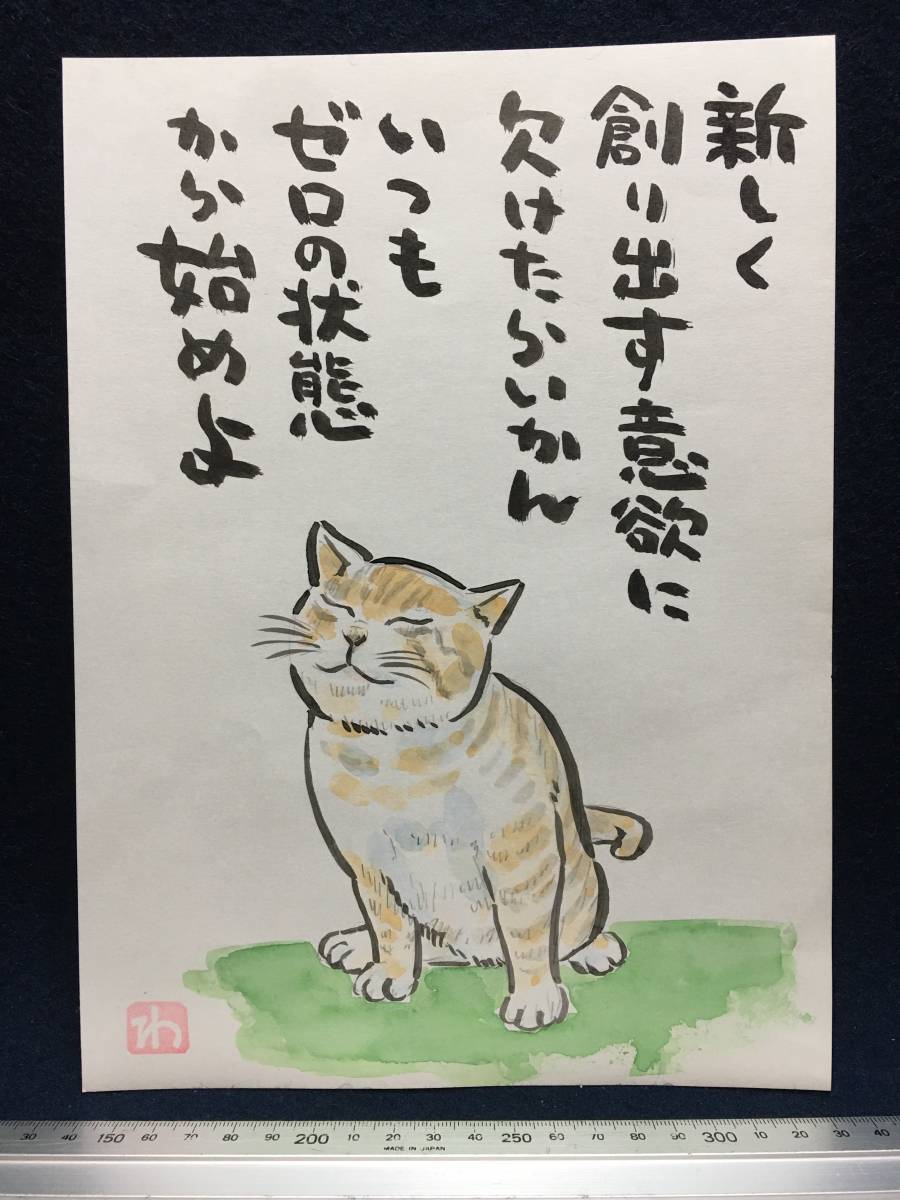 新しく
創り出す意欲に
欠けたらいかん
いつも
ゼロの状態
から始めよ
わ
30 40 150 60 70 80 90 200 10 20 30 40 250 60 70 80 90 300 10 20 30 40
MADE IN JAPAN